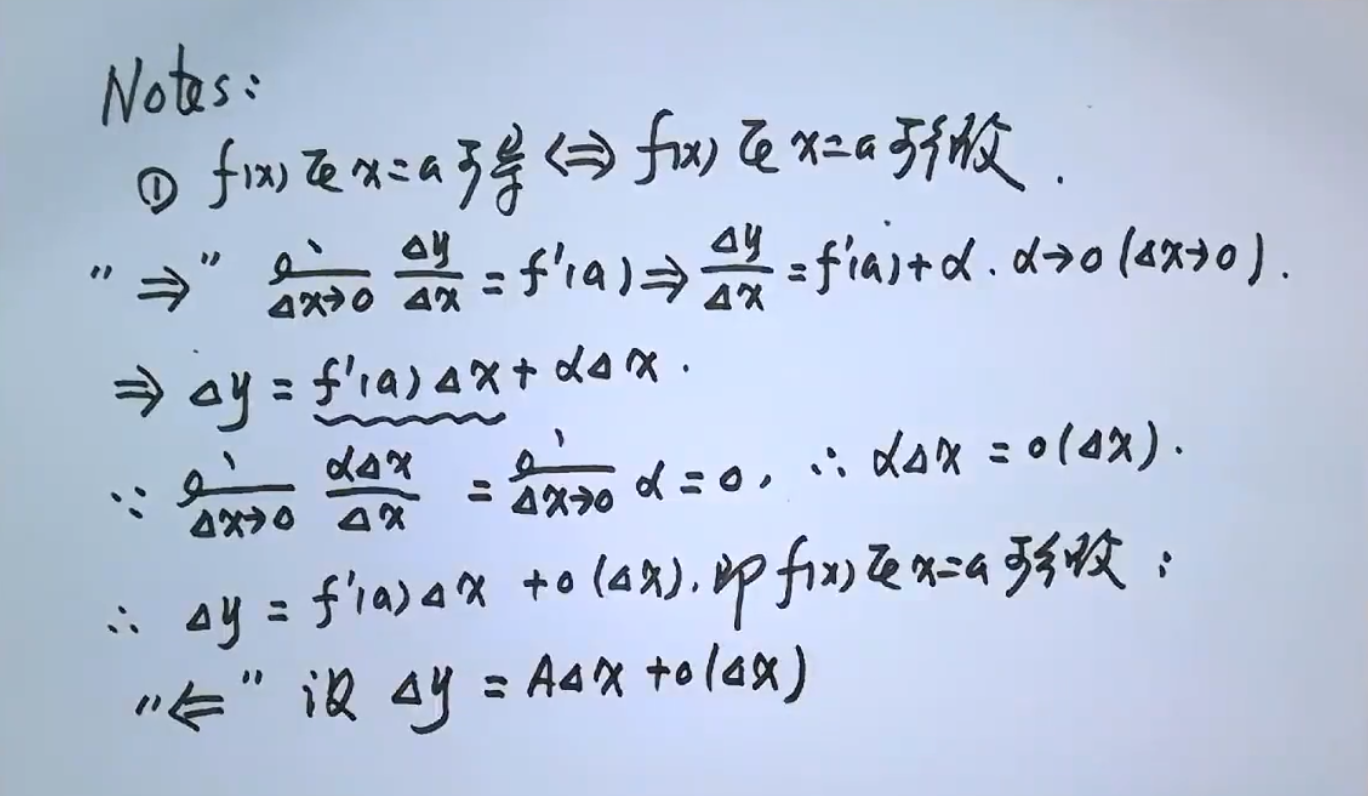 Notes:
① f(x)在x=a可导⇔f(x)在x=a可微.
"⇒" lim_{Δx→0} Δy/Δx = f'(a) ⇒ Δy/Δx = f'(a)+α. α→0 (Δx→0).
⇒ Δy = f'(a)Δx + αΔx.
∵ lim_{Δx→0} αΔx/Δx = lim_{Δx→0} α = 0, ∴ αΔx = o(Δx).
∴ Δy = f'(a)Δx + o(Δx). 即f(x)在x=a可微;
"⇐" 设 Δy = AΔx + o(Δx)